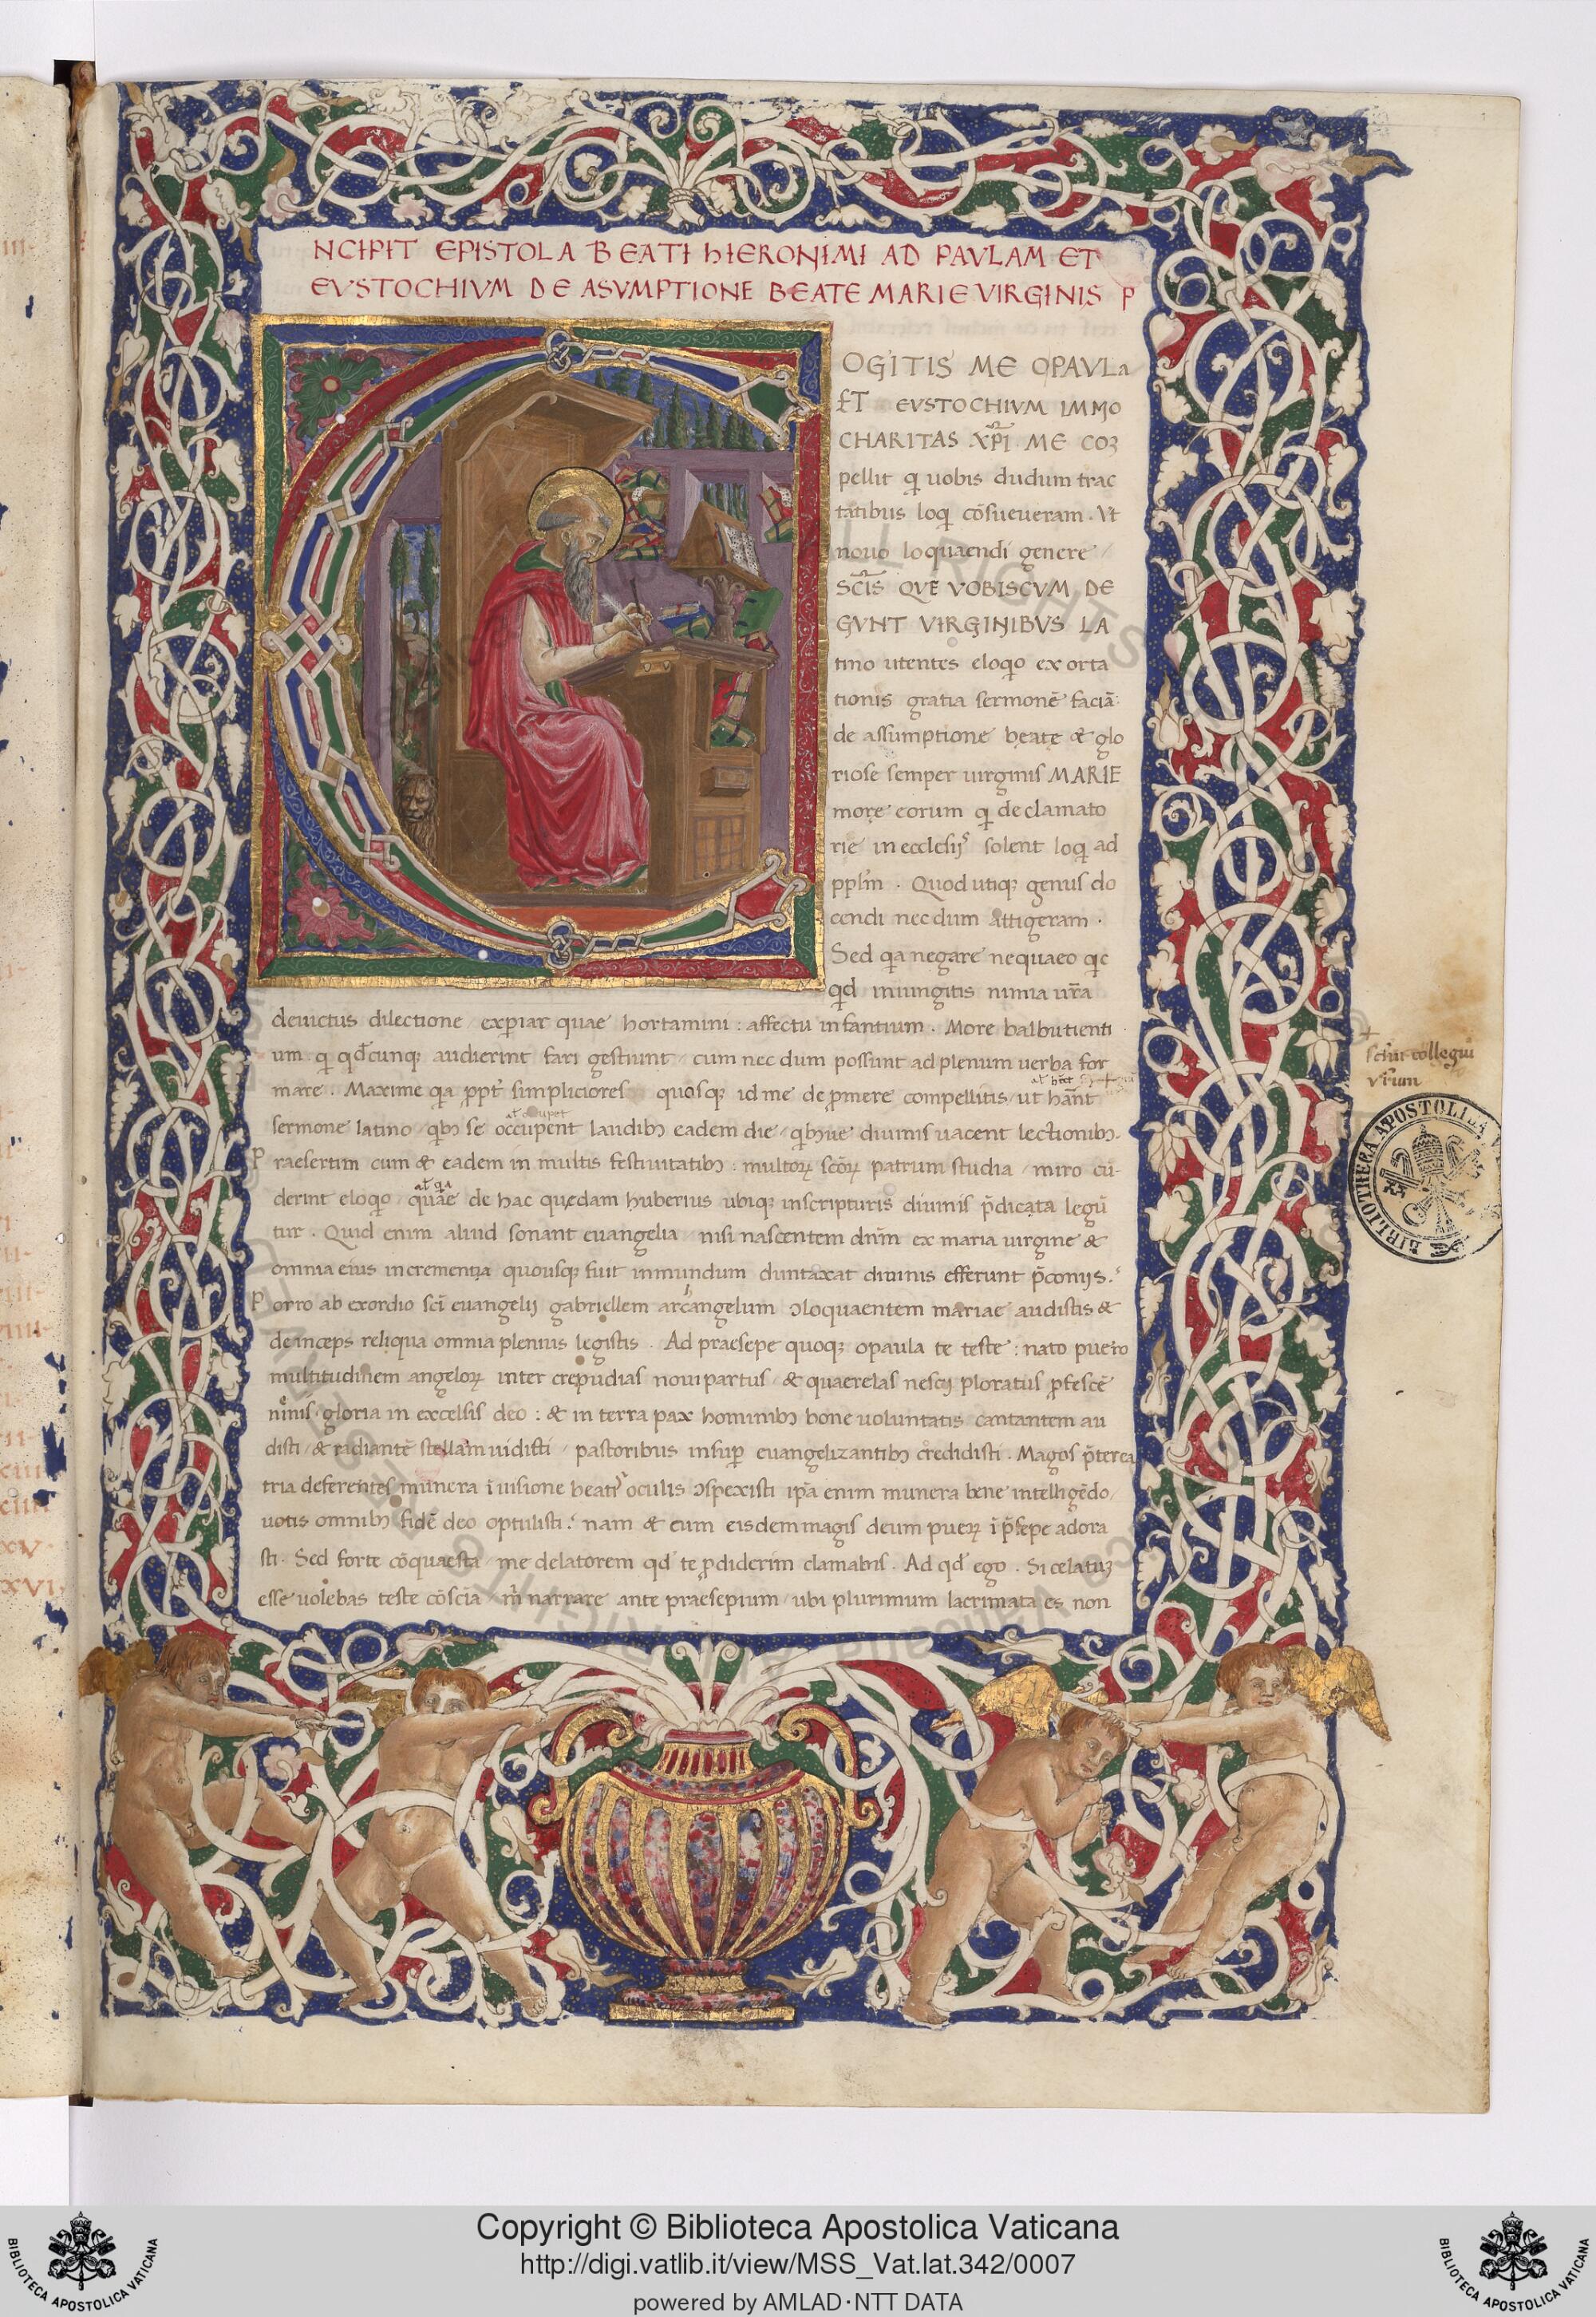 NCIPIT EPISTOLA BEATI hIERONIMI AD PAVLAM ET
EVSTOCHIVM DE ASVMPTIONE BEATE MARIE VIRGINIS P
OGITIS ME OPAVLa
ET EVSTOCHIVM IMMO
CHARITAS XPI ME COꝫ
pellit qͥ uobis dudum trac
tatibus loqͥ cōsueueram. Vt
nouo loquaendi genere
SCĪS QVE VOBISCVM DE
GVNT VIRGINIBVS LA
tino utentes eloqͥo exorta
tionis gratia sermonē faciā
de assumptione beatę & glo
riose semper uirginis MARIE
more eorum qͥ declamato
rie in ecclesijs solent loqͥ ad
ppl̄m. Quod utiqꝫ genus do
cendi necdum attigeram.
Sed qͥa negare nequaeo qͥc
qͥd iniungitis nimia ur̄a
deuictus dilectione experiar quae hortamini: affectu infantium. More balbutienti
um qͥ qd̄cunqꝫ audierint fari gestiunt cum necdum possunt adplenum uerba for
mare. Maxime qͥa ꝓpt̄ simpliciores quosqꝫ id me depromere compellitis ut han̄t
sermone latino qͥbꝫ se occupent laudibꝫ eadem die qͥbꝫue diuinis uacent lectionibꝫ.
Praesertim cum & eadem in multis festiuitatibꝫ: multoꝝ sc̄oꝝ patrum studia miro cu
derint eloqͥo quae de hac quędam huberius ubiqꝫ inscripturis diuinis p̄dicata legū
tur. Quid enim aliud sonant euangelia nisi nascentem dn̄m ex maria uirgine &
omnia eius incrementa quousqꝫ fuit inmundum duntaxat diuinis efferunt p̄conijs.
Porro ab exordio sc̄i euangelij gabriellem arcangelum ɔloquaentem mariae audistis &
deinceps reliqua omnia plenius legistis. Ad praesepe quoqꝫ opaula te teste: nato puero
multitudinem angeloꝝ inter crepudias noui partus & quaerelas nescij ploratus ꝓfescē
ninis gloria in excelsis deo: & in terra pax hominibꝫ bone uoluntatis cantantem au
disti & radiantē stellam uidisti pastoribus insuꝑ euangelizantibꝫ credidisti. Magos p̄terea
tria deferentes munera ī uisione beatis oculis ɔspexisti ipsa enim munera bene intelligēdo
uotis omnibꝫ fidē deo optulisti. nam & cum eisdem magis deum pueꝝ ī p̄sepe adora
sti. Sed forte cōquaesta me delatorem qd̄ te ꝓdiderim clamabis. Ad qd̄ ego. Si celatuꝫ
esse uolebas teste cōscia m̄ narrare ante praesepium ubi plurimum lacrimata es non
collegiū
BIBLIOTHECA APOSTOLICA
Copyright © Biblioteca Apostolica Vaticana
http://digi.vatlib.it/view/MSS_Vat.lat.342/0007
powered by AMLAD·NTT DATA
BIBLIOTECA APOSTOLICA VATICANA
BIBLIOTECA APOSTOLICA VATICANA